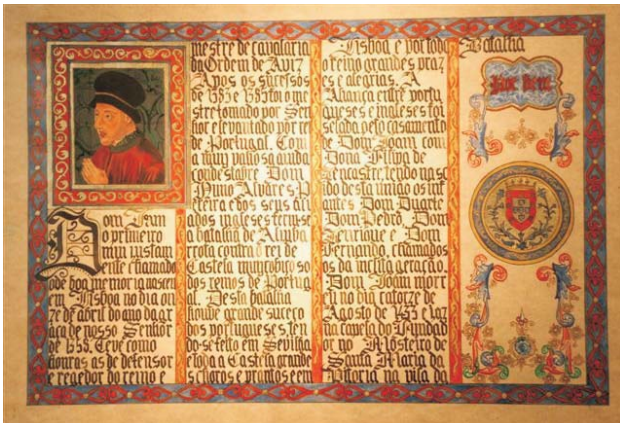 Dom Joam
o primeiro
ode boa memoria nasceu
em Lisboa no dia on
ze de abril do ano da gr
aça de nosso Senhor
de 1358. Teve como
honras as de defensor
e regedor do reino e
mestre de cavalaria
da Ordem de Aviz
Apos os sucessos
de 1383 e 1385 foi o me
stre tomado por Sen
hor e levantado por rei
de Portugal. Com
a muy valiosa ajuda
condestabre Dom
Nuno Alvares P
ereira e dos seus ali
ados ingleses feriu-se
a batalha de Aljuba
rrota contra o rei de
Castela muy nobre so
os reinos de Portug
al. Desta batalha
houve grande suceço
dos portugueses, ten
do-se feito em Sevilha
e toda a Castela grande
s choros e prantos e em
Lisboa e por todo
o reino grandes praz
es e alegrias. A
Aliança entre portu
gueses e ingleses foi
selada pelo casamento
de Dom Joam com
Dona Filipa de
Lencastre, tendo nasc
ido desta uniao os inf
antes Dom Duarte
Dom Pedro, Dom
Henrique e Dom
Fernando, chamados
os da inclita geração.
Dom Joam morr
eu no dia catorze de
Agosto de 1433 e jaz
na capela do Fundad
or no Mosteiro de
Santa Maria da
Vitoria na vila da
Batalha
Por bem